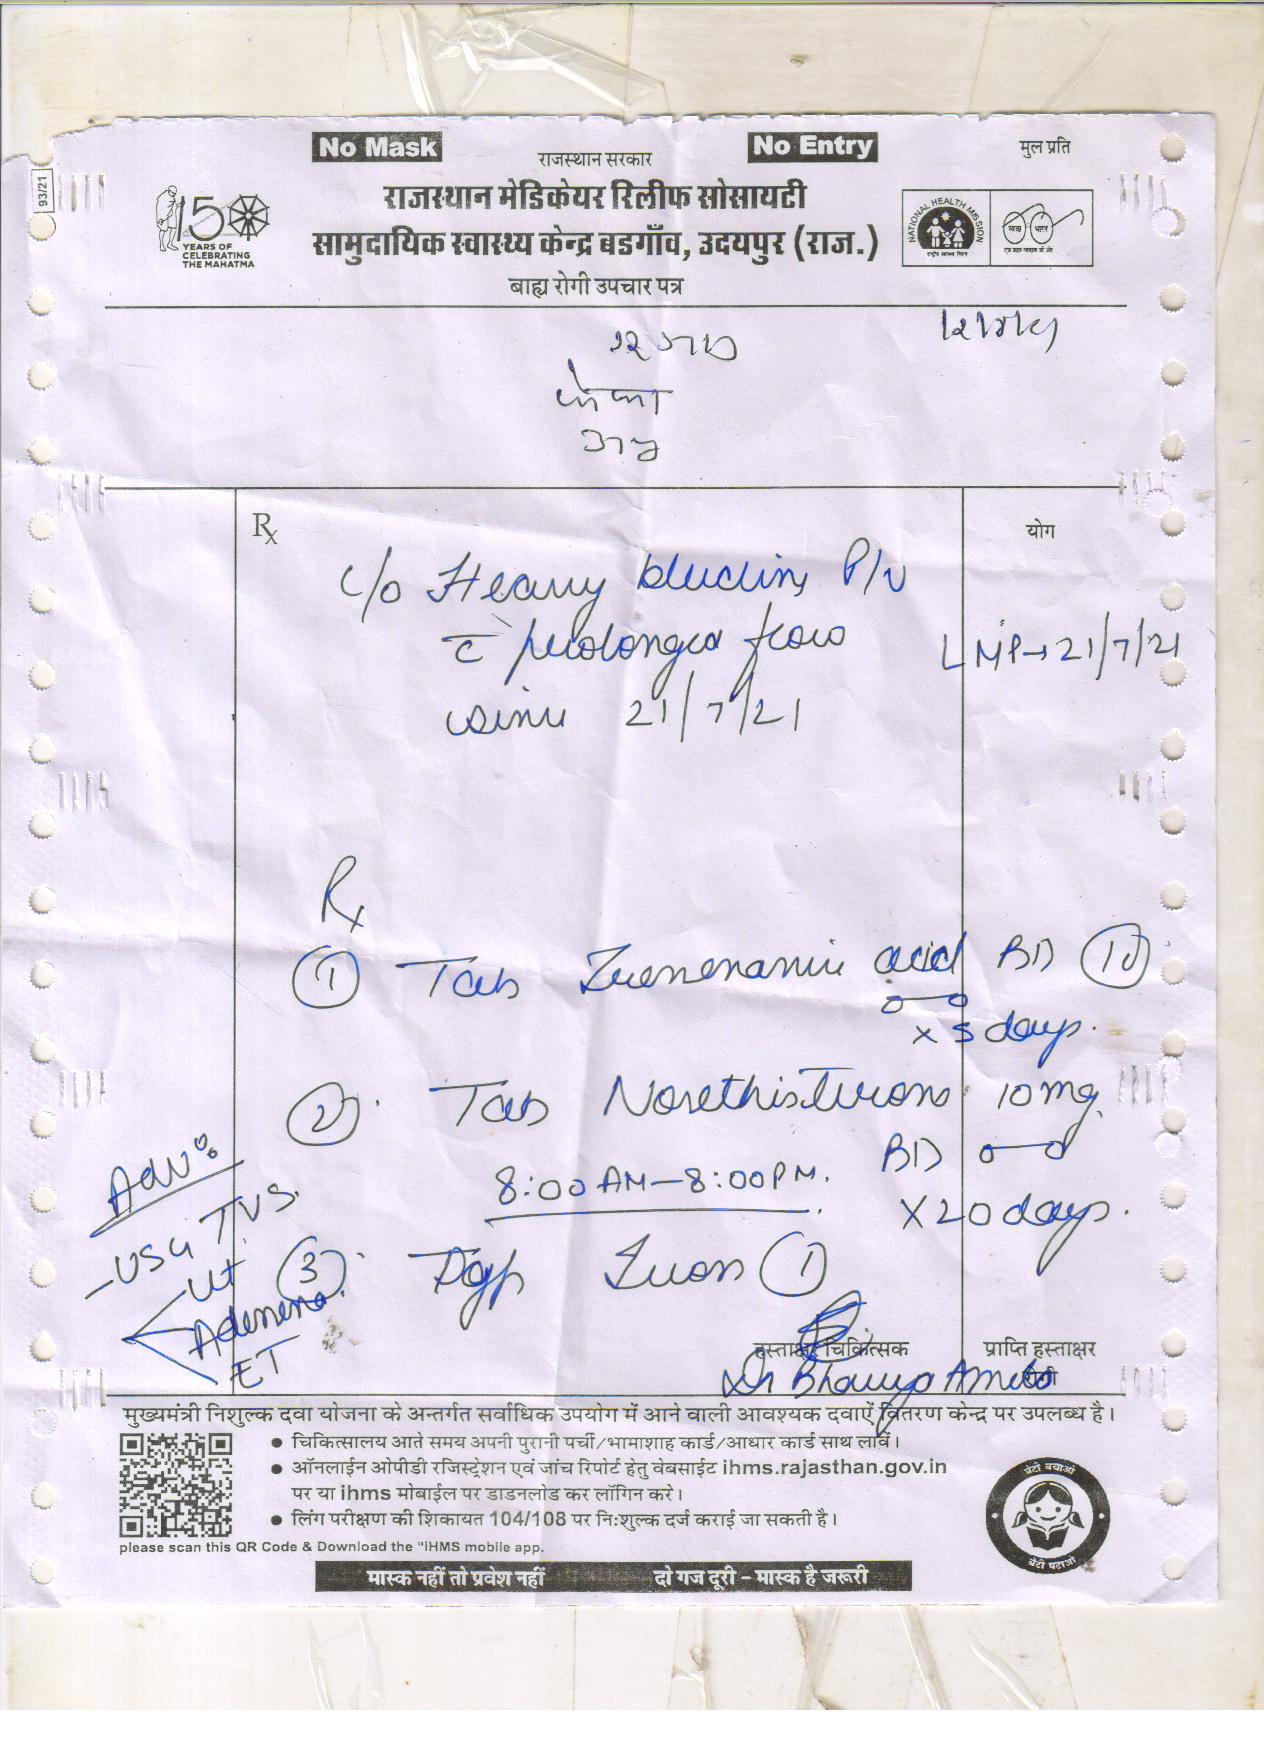 93/21
No Mask
राजस्थान सरकार
No Entry
मुल प्रति
150
YEARS OF
CELEBRATING
THE MAHATMA
राजस्थान मेडिकेयर रिलीफ सोसायटी
सामुदायिक स्वास्थ्य केन्द्र बडगाँव, उदयपुर (राज.)
बाह्य रोगी उपचार पत्र
NATIONAL HEALTH MISSION
राष्ट्रीय स्वास्थ्य मिशन
स्वच्छ भारत
एक कदम स्वच्छता की ओर
Rx
योग
c/o Heavy bleeding P/V
c̄ prolonged flow
since 21/7/21
LMP→21/7/21
Rx
① Tab Tranexamic acid BD ⑩
x 5 days.
② Tab Norethisterone 10mg.
BD
8:00 AM-8:00 PM.
X 20 days.
Adv:
- USG TVS.
Ut
Adenexa
ET
③ ①
हस्ताक्षर चिकित्सक
प्राप्ति हस्ताक्षर
रोगी
Dr Bhavya
मुख्यमंत्री निशुल्क दवा योजना के अन्तर्गत सर्वाधिक उपयोग में आने वाली आवश्यक दवाऐं वितरण केन्द्र पर उपलब्ध है।
● चिकित्सालय आते समय अपनी पुरानी पर्ची/भामाशाह कार्ड/आधार कार्ड साथ लावें।
● ऑनलाईन ओपीडी रजिस्ट्रेशन एवं जांच रिपोर्ट हेतु वेबसाईट ihms.rajasthan.gov.in
पर या ihms मोबाईल पर डाउनलोड कर लॉगिन करे।
● लिंग परीक्षण की शिकायत 104/108 पर नि:शुल्क दर्ज कराई जा सकती है।
please scan this QR Code & Download the "iHMS mobile app.
बेटी बचाओ
बेटी पढाओ
मास्क नहीं तो प्रवेश नहीं
दो गज दूरी - मास्क है जरूरी